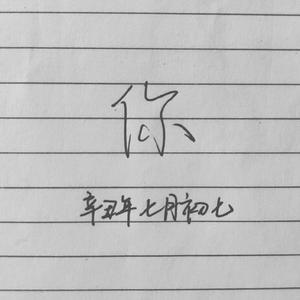 你
辛丑年七月初七